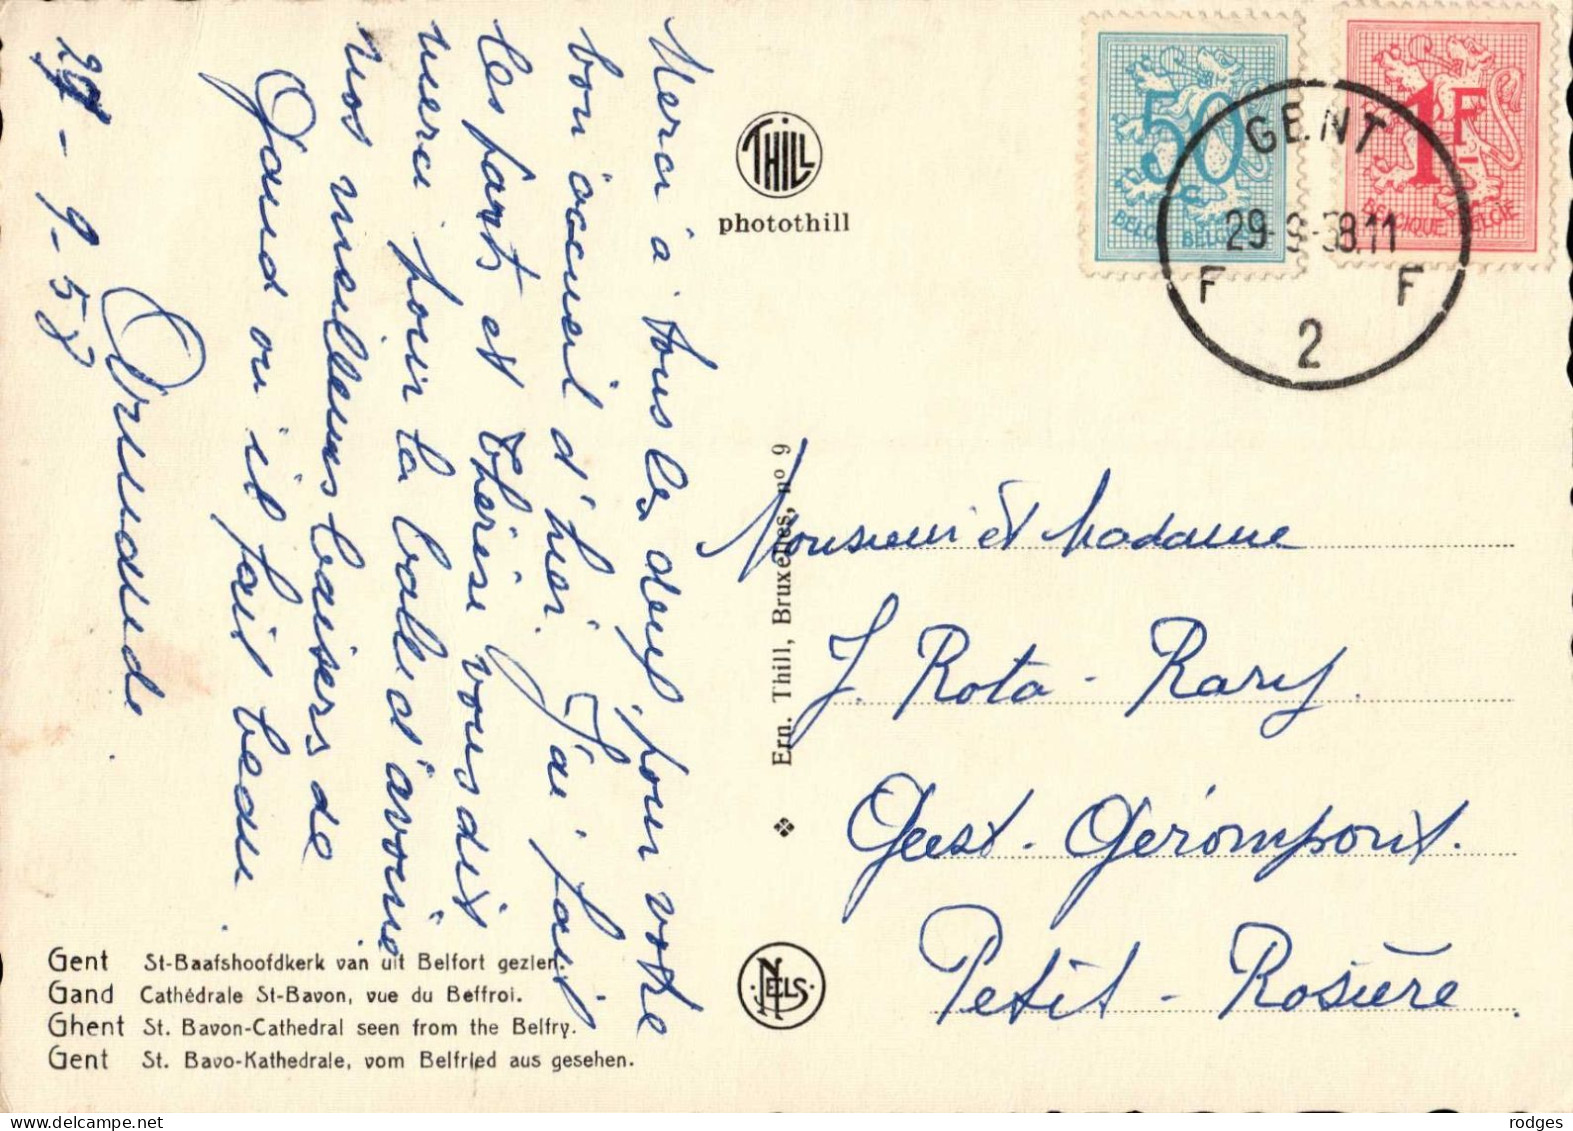 Merci à tous les deux pour votre
bon accueil d'hier. J'ai fait
les parts et Thérèse vous dit
merci pour la balle d'avoine
nos meilleurs baisers de
Gand où il fait beau
29-9-58
THILL
photothill
50
BELGIE
1F
BELGIQUE BELGIE
GENT
29-9-58.11
F F
2
Ern. Thill, Bruxelles, nº 9
Monsieur et Madame
J. Rota-Rary.
Geest-Gérompont.
Petit-Rosière.
NELS
Gent St-Baafshoofdkerk van uit Belfort gezien.
Gand Cathédrale St-Bavon, vue du Beffroi.
Ghent St. Bavon-Cathedral seen from the Belfry.
Gent St. Bavo-Kathedrale, vom Belfried aus gesehen.
www.delcampe.net
rodges